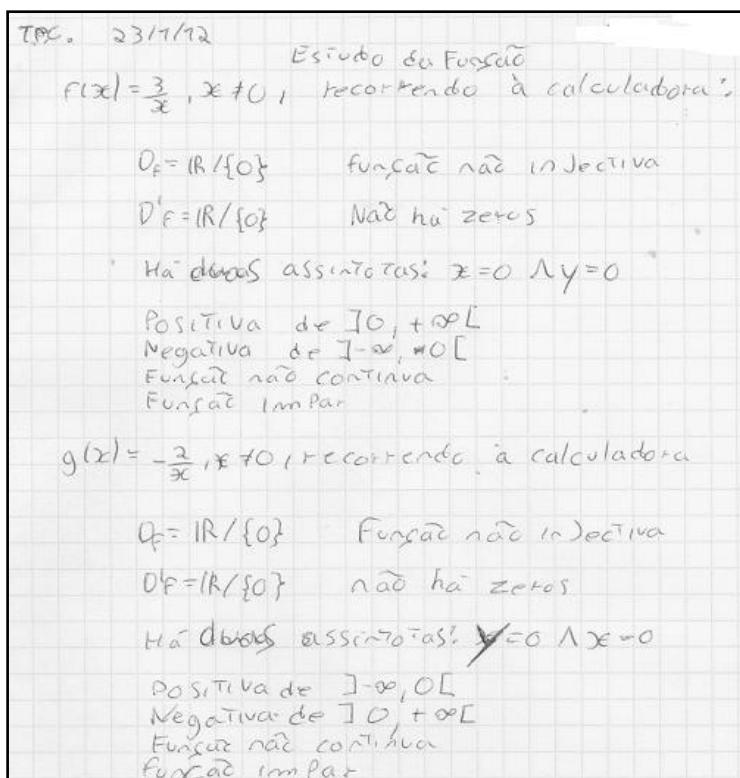 TPC. 23/1/12
Estudo da Função
f(x) = 3/x, x ≠ 0, recorrendo à calculadora:
Df = IR/{0} função não injectiva
D'f = IR/{0} Não há zeros
Há duas assintotas: x=0 ∧ y=0
Positiva de ]0, +∞[
Negativa de ]-∞, 0[
Função não continua
Função impar
g(x) = -2/x, x ≠ 0, recorrendo à calculadora
Df = IR/{0} Função não injectiva
D'f = IR/{0} não há zeros
Há duas assintotas: y=0 ∧ x=0
Positiva de ]-∞, 0[
Negativa de ]0, +∞[
Função não continua
Função impar